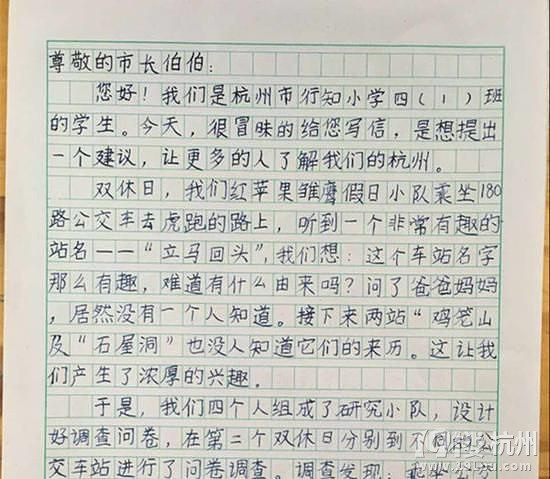 尊敬的市长伯伯：
您好！我们是杭州市行知小学四（1）班
的学生。今天，很冒昧的给您写信，是想提出
一个建议，让更多的人了解我们的杭州。
双休日，我们红苹果雏鹰假日小队乘坐180
路公交车去虎跑的路上，听到一个非常有趣的
站名——“立马回头”，我们想：这个车站名字
那么有趣，难道有什么由来吗？问了爸爸妈妈
，居然没有一个人知道。接下来两站“鸡笼山
及“石屋洞”也没人知道它们的来历。这让我
们产生了浓厚的兴趣。
于是，我们四个人组成了研究小队，设计
好调查问卷，在第二个双休日分别到不同的公
交车站进行了问卷调查。调查发现：乘坐公交
19楼杭州